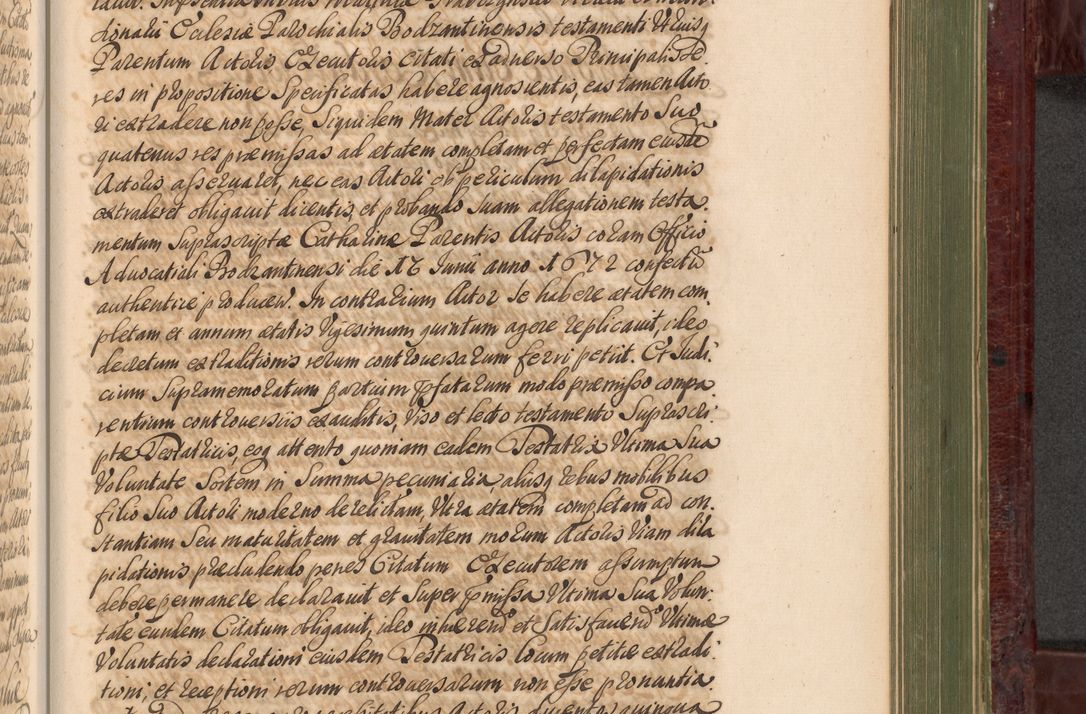 tionalii Ecclesiæ Parochialis Bodzantinensis testamenti Utriusq
Parentum Actoris, Executoris Citati ex adverso Principalis De
res in propositione Specificatas habere agnoscentis, eas tamen Acto
ri extradere non posse, Siquidem Mater Actoris testamento Suo
quatenus res præmissas ad ætatem completam et perfectam eiusdē
Actoris asservaret, nec eas Actori ob periculum dilapidationis
extraderet obligavit dicentis, et probando Suam allegationem testa
mentum Suprascriptæ Catharinæ Parentis Actoris coram Officio
Advocatiali Bodzantinensi die 16 Junii anno 1672 confectū
authentice producen. In contrarium Actor Se habere ætatem com,
pletam et annum ætatis Vigesimum quintum agere replicavit, ideo
decretum extraditionis rerum controversarum ferri petiit. Et Judi,
cium Supramemoratum partium pfatarum modo præmisso compa
rentium controversiis exauditis, Viso et lecto testamento Suprascri
ptæ Testatricis, eoq attento quoniam eadem Testatrix Ultima Sua
Voluntate Sortem in Summa pecuniaria aliisq rebus mobilibus
filio Suo Actori moderno derelictam, Ultra ætatem completam ad con,
stantiam Seu maturitatem et gravitatem morum Actoris Viam dila
pidationis præcludendo penes Citatum Executorem assumptum
debere permanere declaravit et Super pmissa Ultima Sua Volun:
tate eundem Citatum obligavit, ideo inhærendo et Satisfaciendo Ultimæ
Voluntatis declarationi eiusdem Testatricis locum petitæ extradi
tioni, et receptioni rerum controversarum non esse pronuntia.